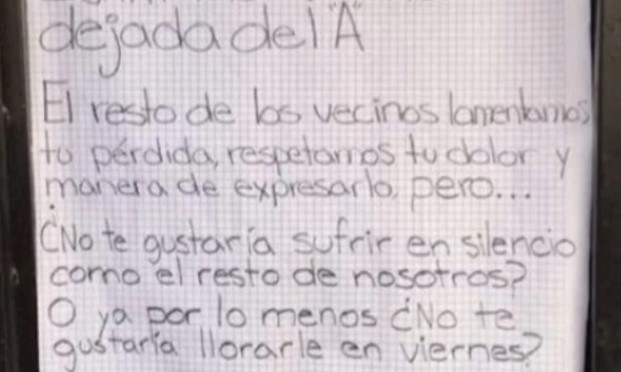 dejada del "A"
El resto de los vecinos lamentamos
tu pérdida, respetamos tu dolor y
manera de expresarlo, pero...
¿No te gustaría sufrir en silencio
como el resto de nosotros?
O ya por lo menos ¿No te
gustaría llorarle en viernes?